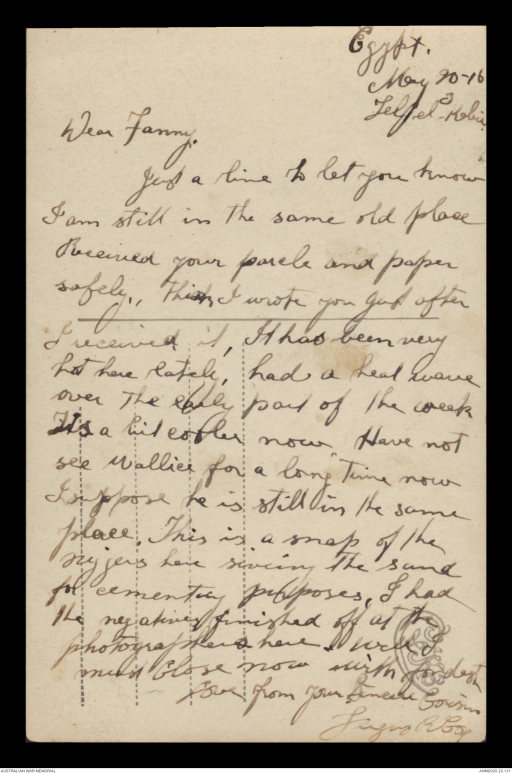 Egypt.
May 20-16
Tel, el, Kebir
Dear Fanny.
Just a line to let you know
I am still in the same old place
Received your parcle and paper
safely., Think I wrote you just after
I received it, It has been very
hot here lately, had a heat wave
over the early part of the week
Its a bit cooler now Have not
see Wallice for a long time now
I suppose he is still in the same
place. This is a snap of the
niggers here siveing the sand
for cementing purposes, I had
the negatives finished off at the
photographers here. Well I
must close now with fondest
Love from your Sincere Cousin
AUSTRALIAN WAR MEMORIAL